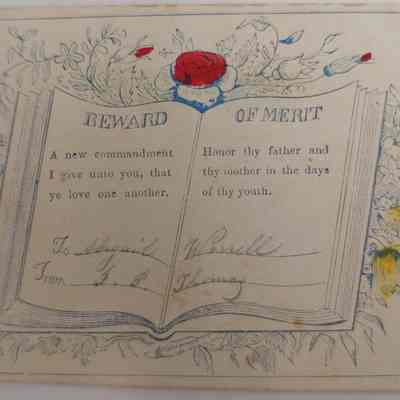 REWARD OF MERIT
A new commandment
I give unto you, that
ye love one another.
Honor thy father and
thy mother in the days
of thy youth.
To Abigail Worrell
From
Thomas